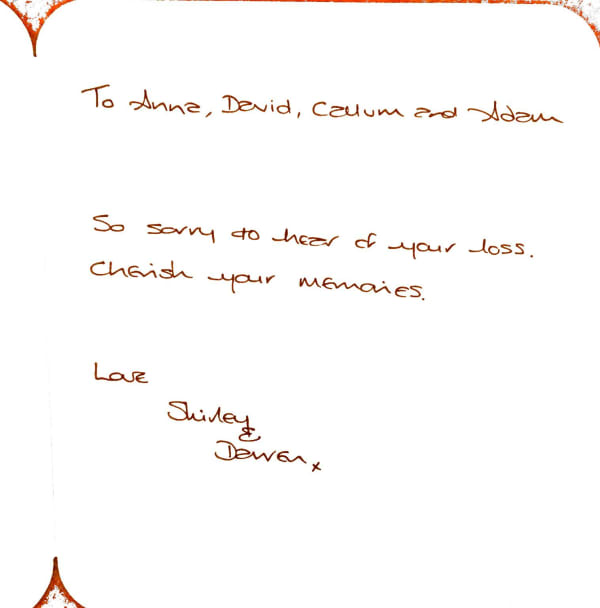 To Anna, David, Callum and Adam
So sorry to hear of your loss.
Cherish your memories.
Love
Shirley
&
Darren x